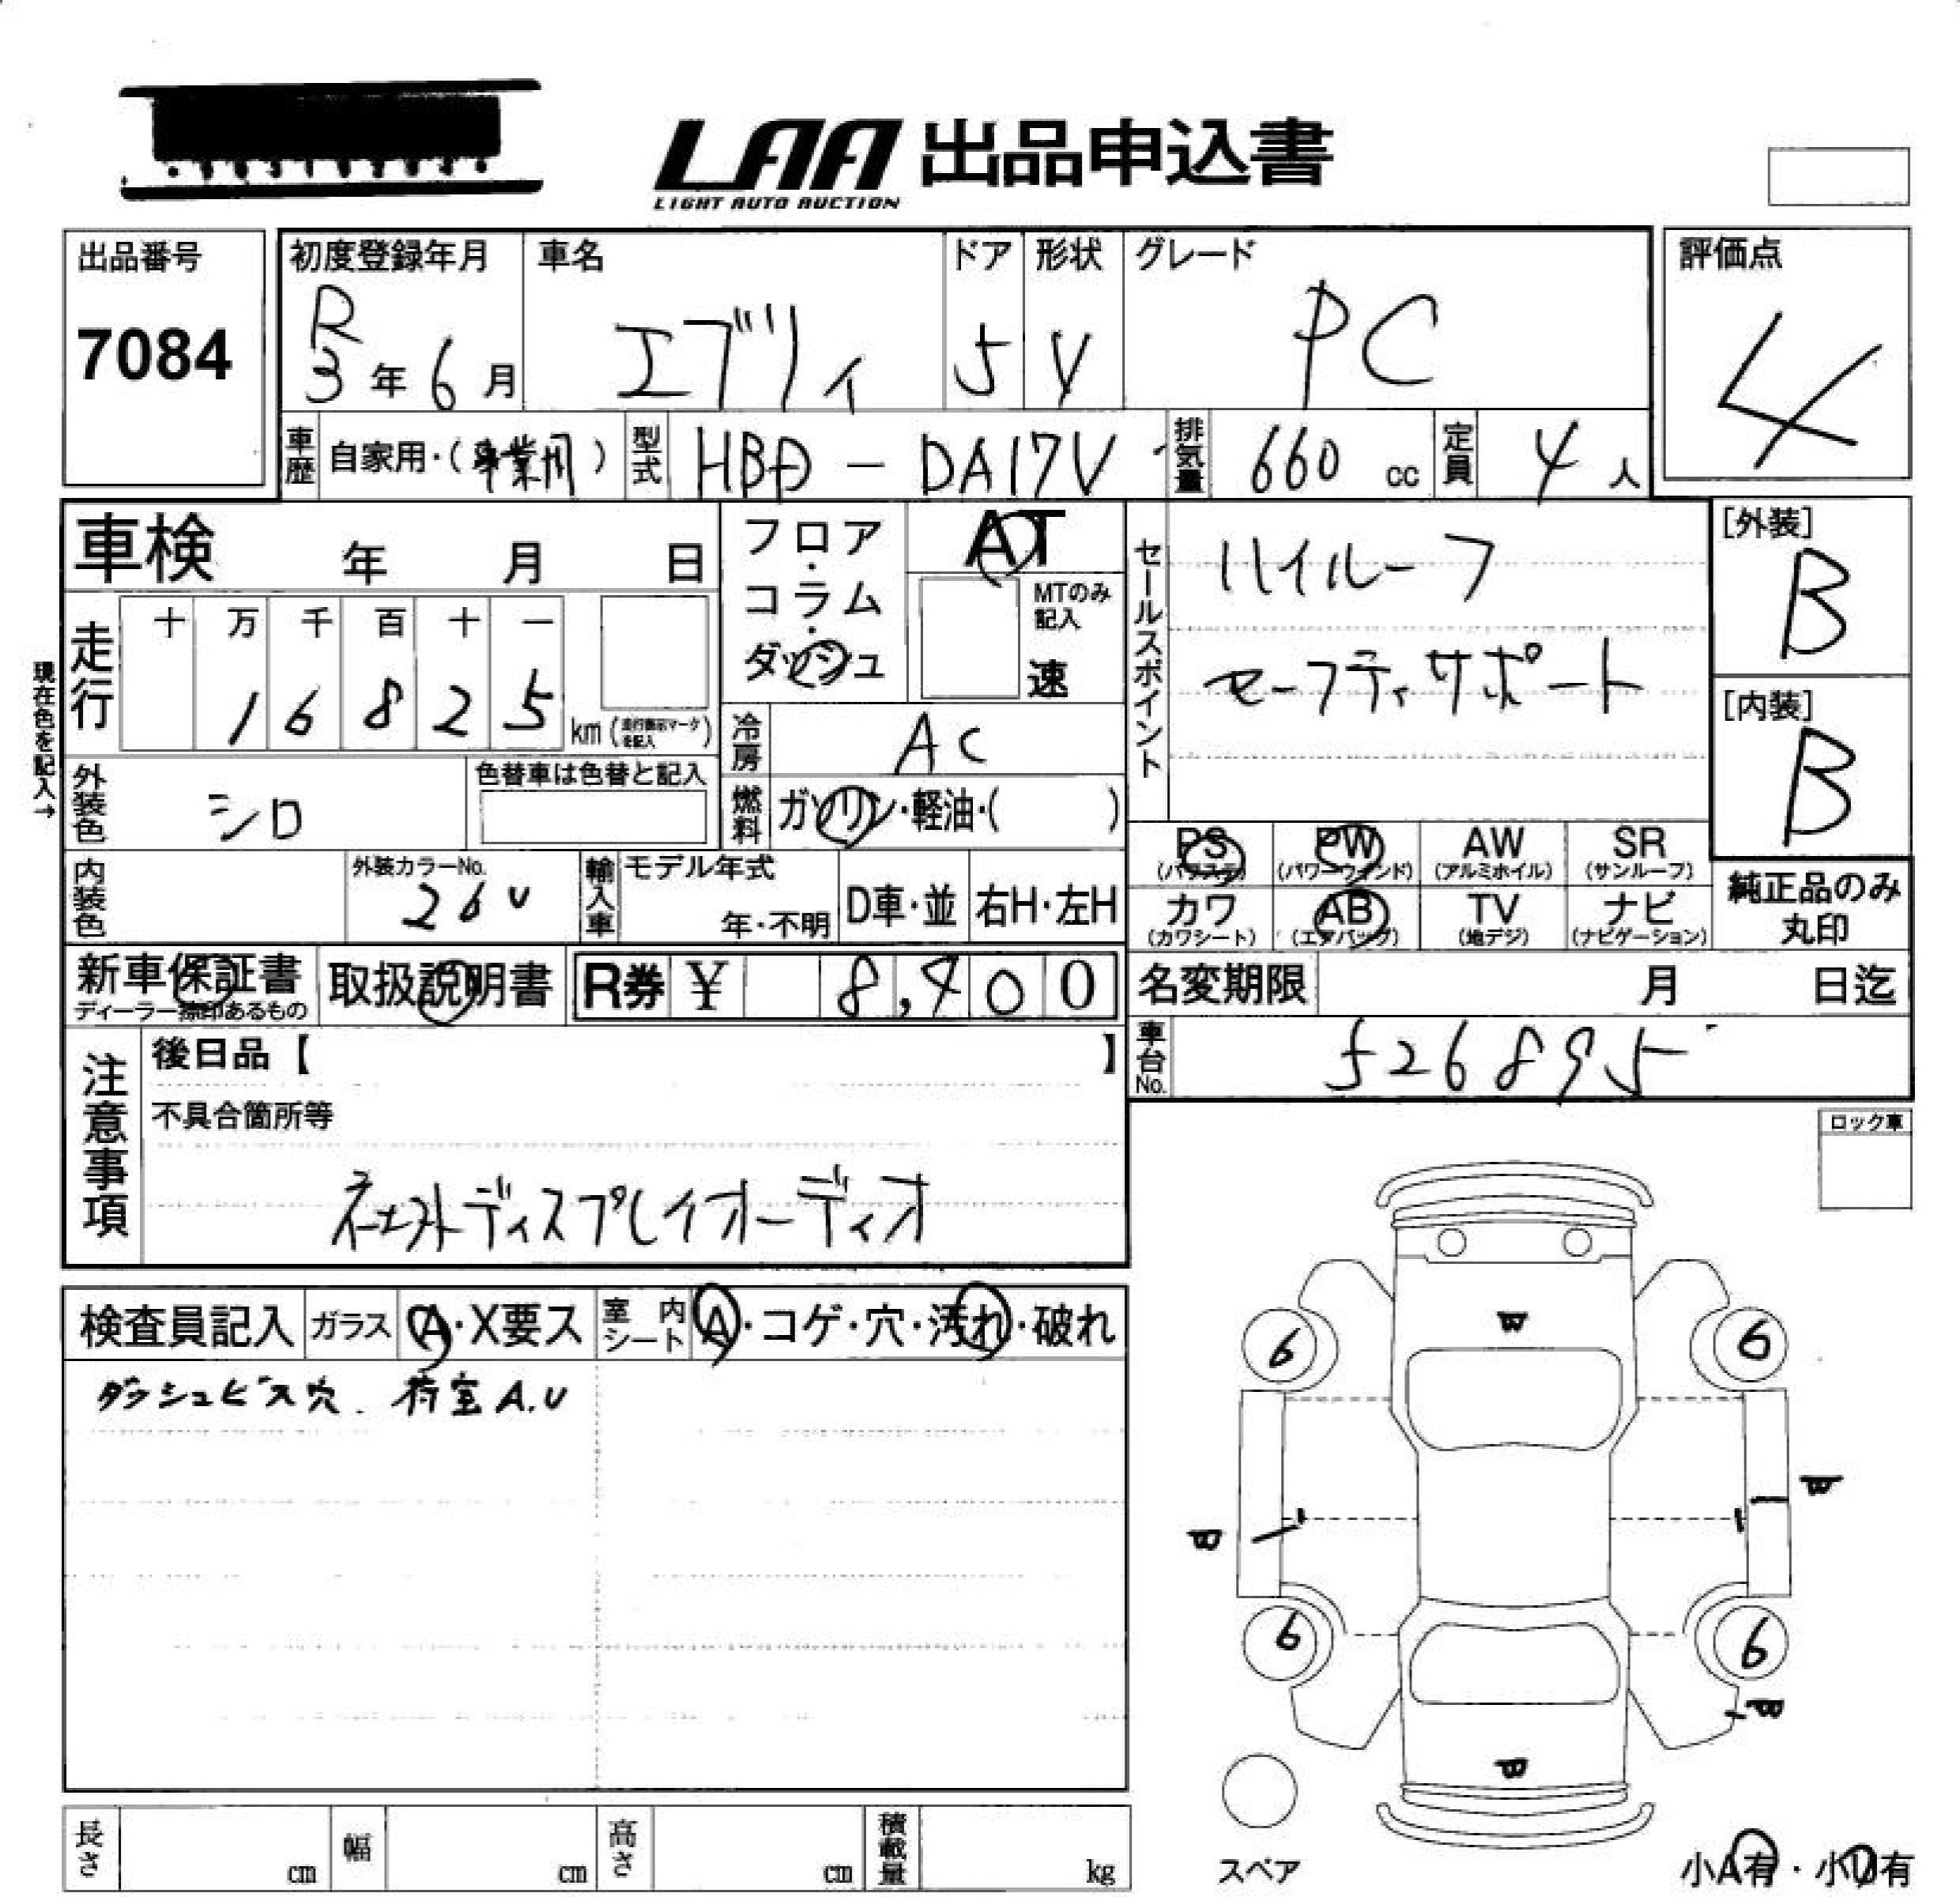 LAA 出品申込書
LIGHT AUTO AUCTION
出品番号
7084
初度登録年月
R
3年6月
車名
エブリィ
ドア
5
形状
V
グレード
PC
評価点
4
車歴
自家用・(事業用)
型式
HBD - DA17V
排気量
660 cc
定員
4人
車検 年 月 日
フロア・コラム・ダッシュ
AT
MTのみ記入
速
セールスポイント
ハイルーフ
セーフティサポート
[外装]
B
[内装]
B
現在色を記入→
走行
十 万 千 百 十 一
1 6 8 2 5 km (走行表示マークを記入)
冷房
AC
外装色
シロ
色替車は色替と記入
燃料
ガソリン・軽油・( )
PS
(パワステ)
PW
(パワーウインド)
AW
(アルミホイル)
SR
(サンルーフ)
内装色
外装カラーNo.
26U
輸入車
モデル年式
年・不明
D車・並
右H・左H
カワ
(カワシート)
AB
(エアバッグ)
TV
(地デジ)
ナビ
(ナビゲーション)
純正品のみ
丸印
新車保証書
ディーラー捺印あるもの
取扱説明書
R券 ¥ 8,400
名変期限 月 日迄
車台No.
526895
注意事項
後日品【 】
不具合箇所等
ディスプレイオーディオ
ロック車
検査員記入
ガラス
A・X要ス
室内シート
A・コゲ・穴・汚れ・破れ
ダッシュビス穴. 荷室A.U
W
6
6
W
B
6
6
B
B
スペア
小A有・小U有
長さ cm
幅 cm
高さ cm
積載量 kg